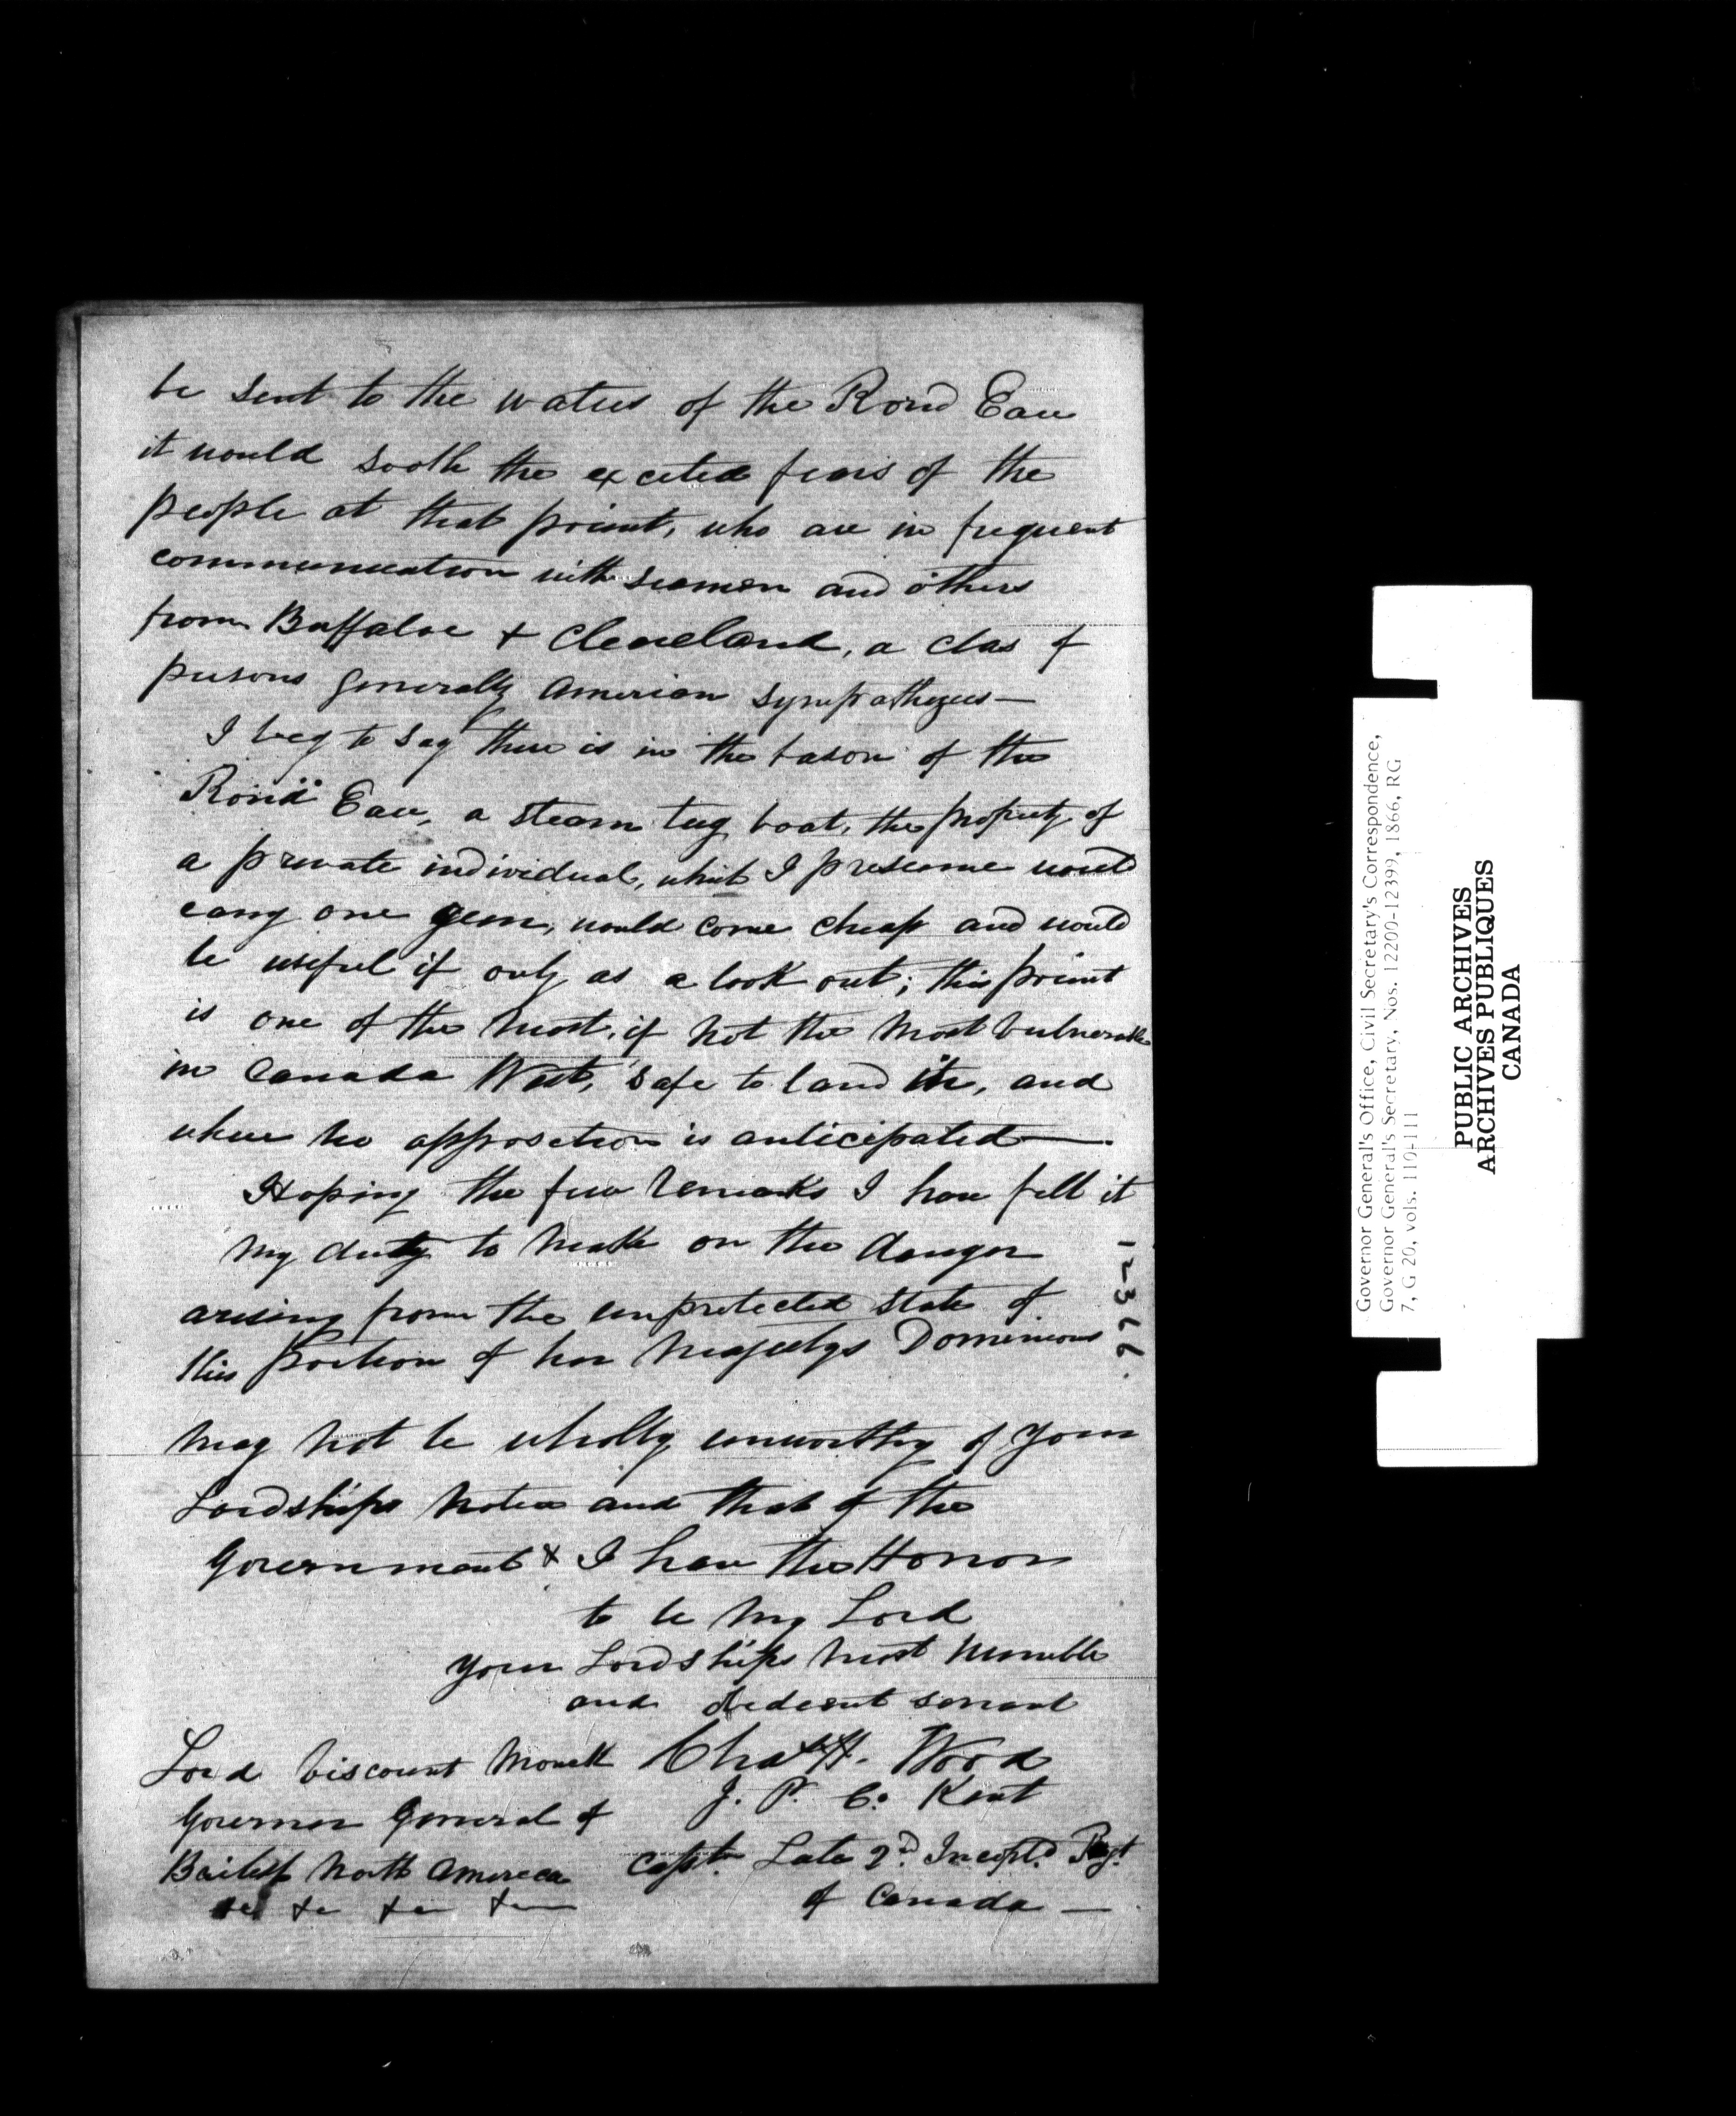 be sent to the waters of the Rond Eau
it would sooth the excited fears of the
people at that point, who are in frequent
communication with seamen and others
from Buffaloe & Cleveland, a clas of
persons generally American sympathizers—
I beg to say there is in the bason of the
Rond Eau, a steam tug boat, the property of
a private individual, which I presume would
carry one gun, would come cheap and would
be useful if only as a look out; this point
is one of the most, if not the most vulnerable
in Canada West, safe to land in, and
where no opposition is anticipated—.
Hoping the few remarks I have felt it
my duty to make on the danger
arising from the unprotected state of
this portion of her Majestys Dominions
may not be wholly unworthy of your
Lordships notice and that of the
Government & I have the Honor
to be my Lord
your Lordships most humble
and obedient servant
Chas H. Wood
J. P. Co. Kent
Capt. Late 2d. Incorpd. Regt
of Canada —
Lord Viscount Monck
Governor General of
British North America
&c &c &c &c
12366.
Governor General's Office, Civil Secretary's Correspondence,
Governor General's Secretary, Nos. 12200-12399, 1866, RG
7, G 20, vols. 110-111
PUBLIC ARCHIVES
ARCHIVES PUBLIQUES
CANADA